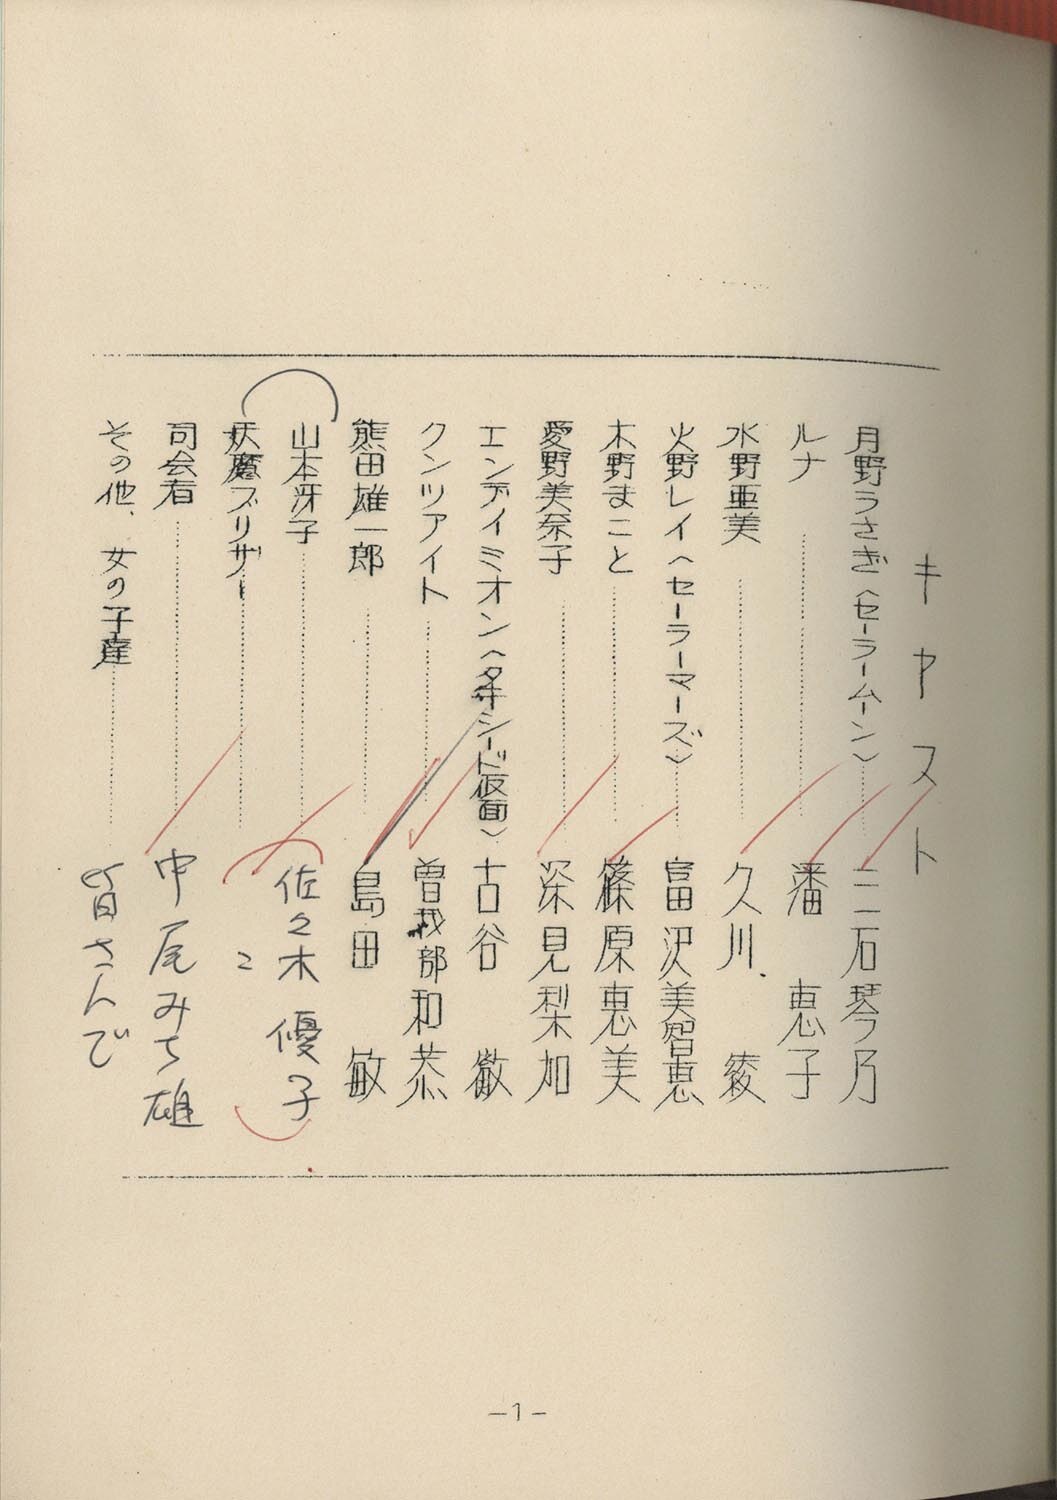 キャスト
月野うさぎ〈セーラームーン〉………三石琴乃
ルナ………潘恵子
水野亜美………久川綾
火野レイ〈セーラーマーズ〉………富沢美智恵
木野まこと………篠原恵美
愛野美奈子………深見梨加
エンディミオン〈タキシード仮面〉古谷徹
クンツァイト………曽我部和恭
熊田雄一郎………島田敏
山本牙子………佐々木優子
妖魔ブリザー………〃
司会者………中尾みち雄
その他、女の子達………皆さんで
—1—